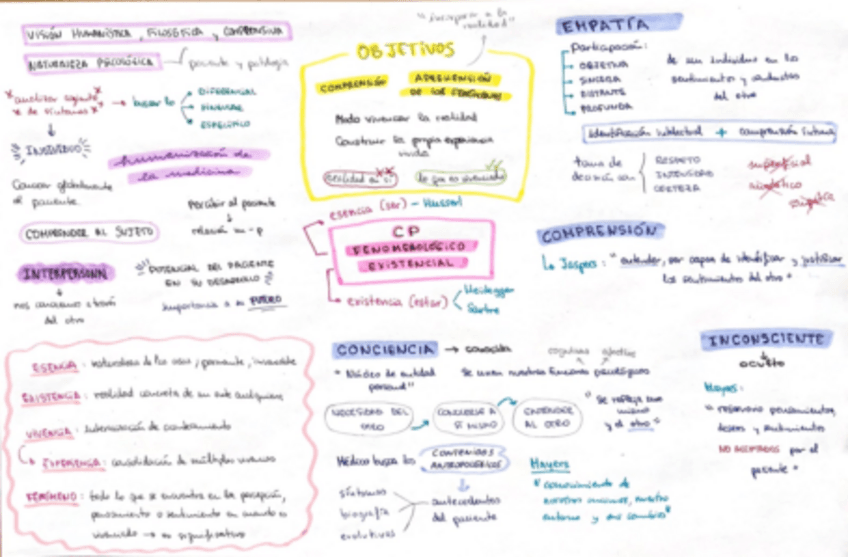 VISIÓN HUMANÍSTICA, FILOSÓFICA y COMPRENSIVA
NATURALEZA PSICOLÓGICA → paciente y patología
síntomas → buscar lo
DIFERENCIAL
SINGULAR
ESPECÍFICO
INDIVIDUO
humanización de
la medicina
Conocer globalmente
al paciente
Percibir al paciente
↓
relación m-p
COMPRENDER AL SUJETO
INTERPERSONAL
↓
nos conocemos a través
del otro
POTENCIAL DEL PACIENTE
EN SU DESARROLLO
importancia a su FUTURO
"incorporar a la
realidad"
OBJETIVOS
COMPRENSIÓN
APREHENSIÓN
DE LOS FENÓMENOS
Modo vivenciar la realidad
Construir la propia experiencia
vivida
realidad en sí
lo que es vivenciado
esencia (ser) - Husserl
CP
FENOMENOLÓGICO
EXISTENCIAL
existencia (estar)
Heidegger
Sartre
EMPATÍA
Participación:
OBJETIVA
SINCERA
DISTANTE
PROFUNDA
de un individuo en los
sentimientos y conductas
del otro
identificación intelectual + comprensión íntima
toma de
decisión con
RESPETO
INTENSIDAD
CERTEZA
superficial
simpatía
COMPRENSIÓN
↳ Jaspers: "entender, ser capaz de identificar y justificar
los sentimientos del otro"
ESENCIA: naturaleza de las cosas, permanente, invariable
EXISTENCIA: realidad concreta de un ente cualquiera
VIVENCIA: interiorización de
↳ EXPERIENCIA: consolidación de múltiples vivencias
FENÓMENO: todo lo que se encuentra en la percepción,
pensamiento o sentimiento en cuanto es
vivenciado → es significativo
CONCIENCIA →
cognitivas afectivas
"Núcleo de entidad
personal"
Se unen nuestras funciones psicológicas
NECESIDAD DEL
OTRO
CONOCERSE A
SÍ MISMO
ENTENDER
AL OTRO
"Se refleja uno
mismo
y el otro"
Médico busca los
CONTENIDOS
ANTROPOLÓGICOS
síntomas
biografía
evolutivas
antecedentes
del paciente
Mayers
"conocimiento de
nosotros mismos, nuestro
entorno y sus cambios"
INCONSCIENTE
↓
OCULTO
Mayers:
"reservorio pensamientos,
deseos y sentimientos
NO ACEPTADOS por el
paciente"